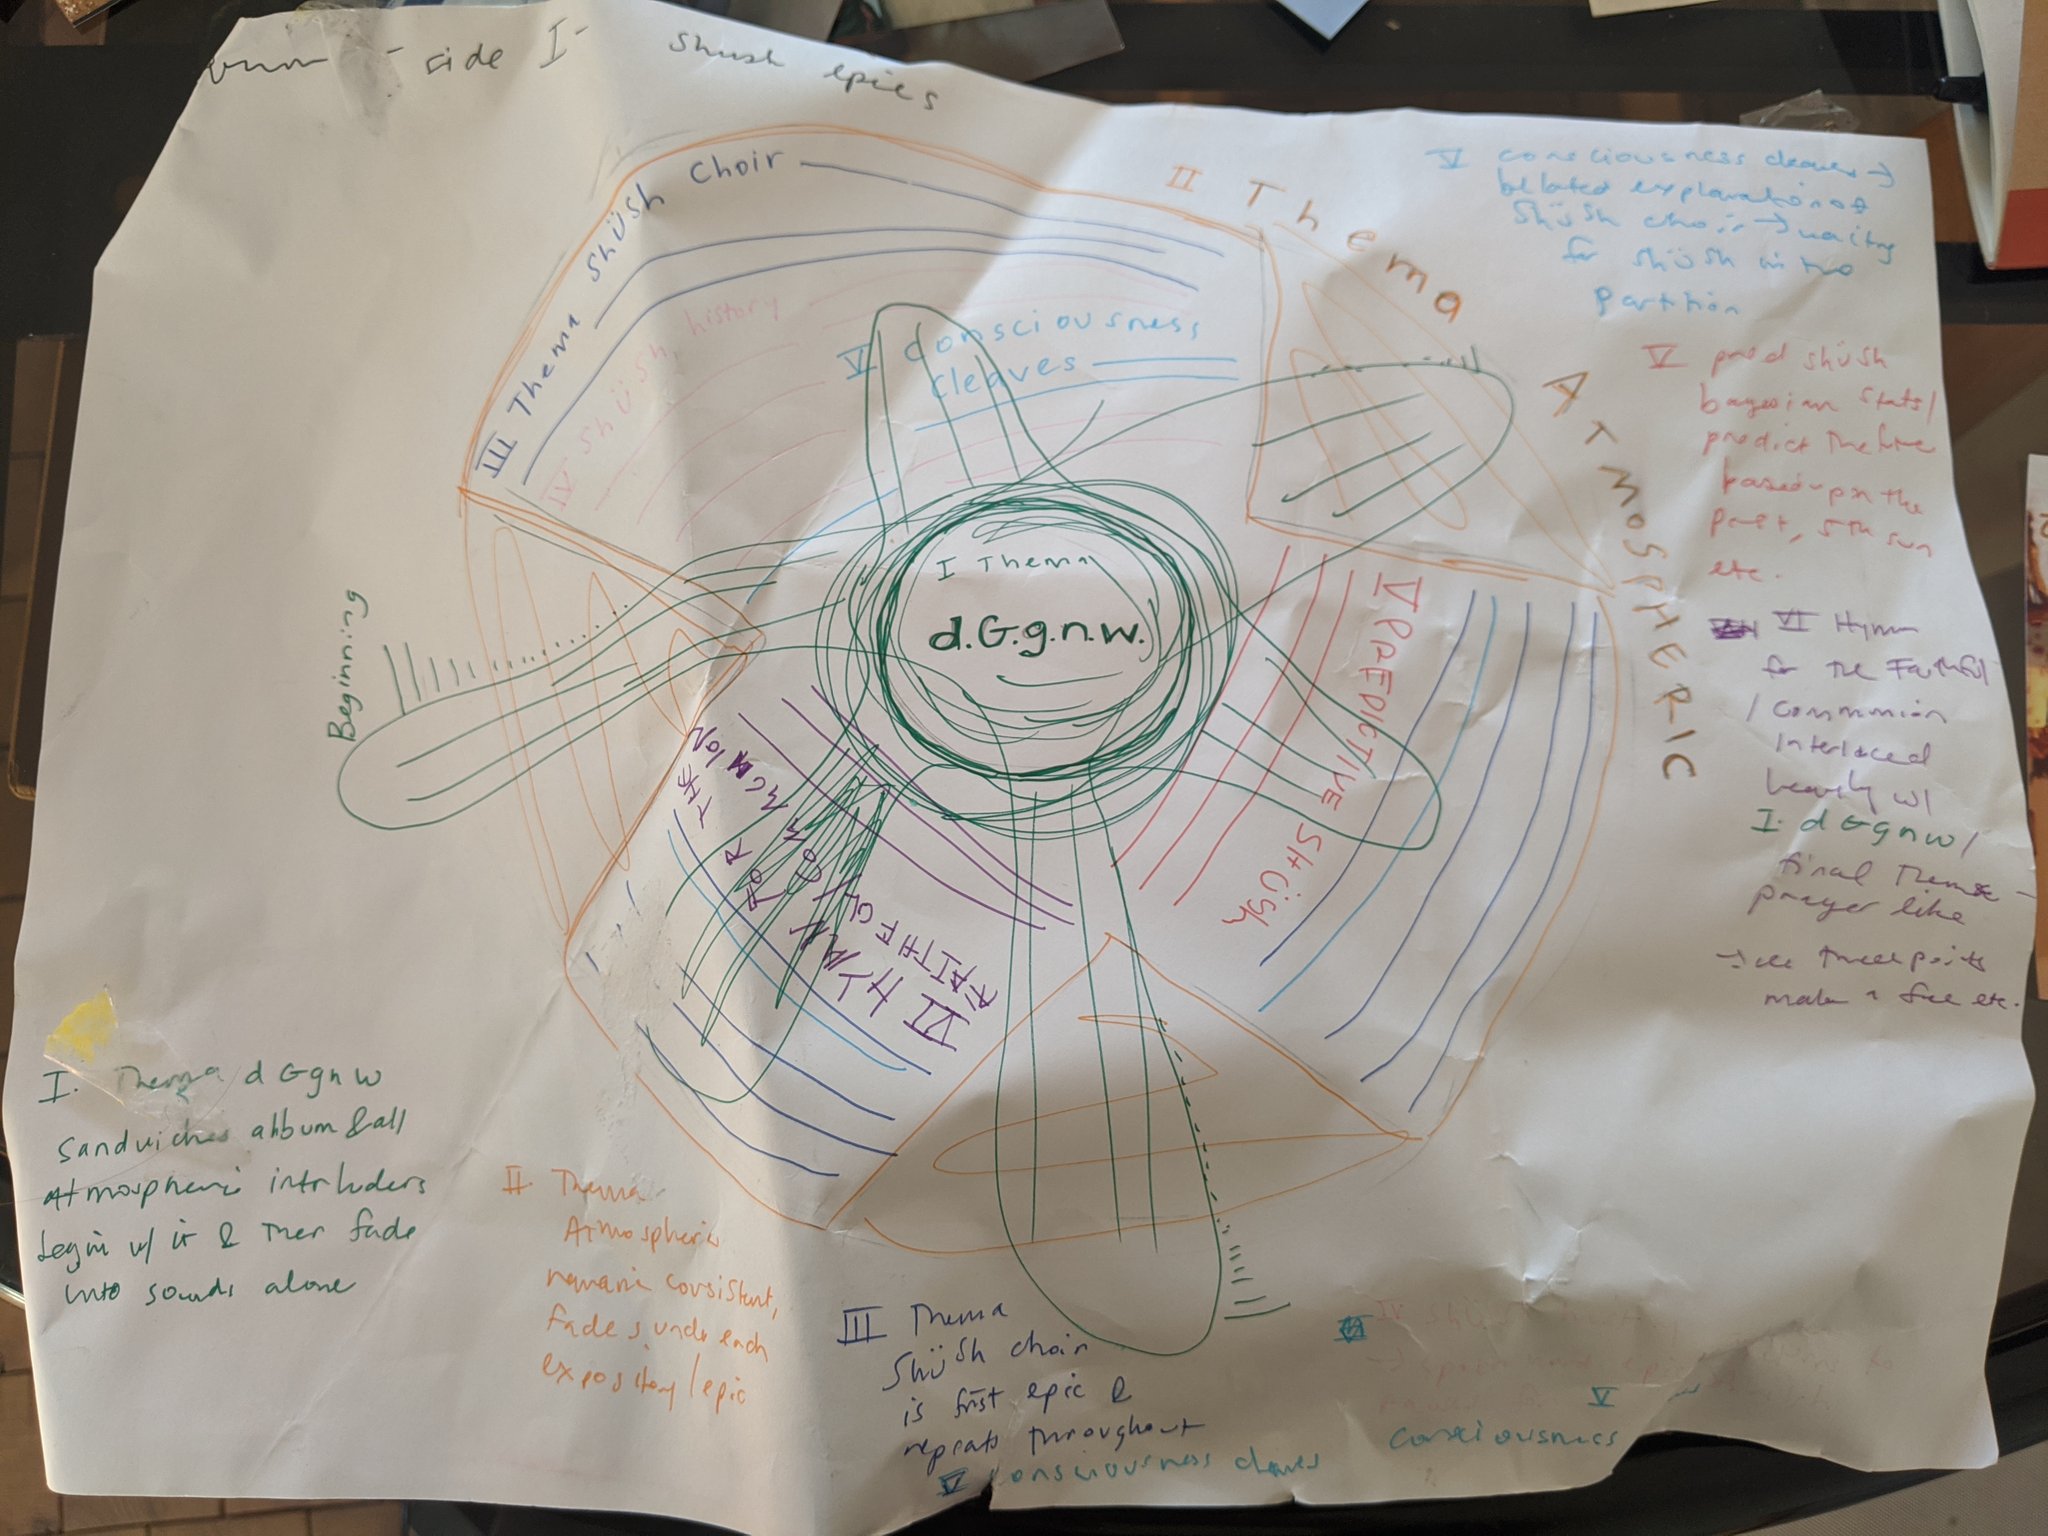 side I - Shush epics
II Thema
ATMOSPHERIC
III Thema Shüsh Choir
IV Shüsh history
V consciousness
cleaves
I Thema
d.G.g.n.w.
Beginning
V PREDICTIVE SHÜSH
VI HYMN FOR THE
FAITHFUL
V consciousness cleaves →
belated explanation of
Shüsh choir → waiting
for shüsh in two
partition
V pred shüsh
bayesian stats/
predict the future
based upon the
past, 5th sun
etc.
VI Hymn
for the Faithful
/ Communion
interlaced
heavily w/
I. d G g n w /
final Theme -
prayer like
→ three points
make a etc.
I. Thema d G g n w
Sandwiches album & all
Atmospheric intruders
begin w/ it & then fade
into sounds alone
II. Thema
Atmospheric
remain consistent,
fades under each
expository/epic
III Thema
Shüsh choir
is first epic &
repeats throughout
V consciousness cleaves
IV
V
Consciousness